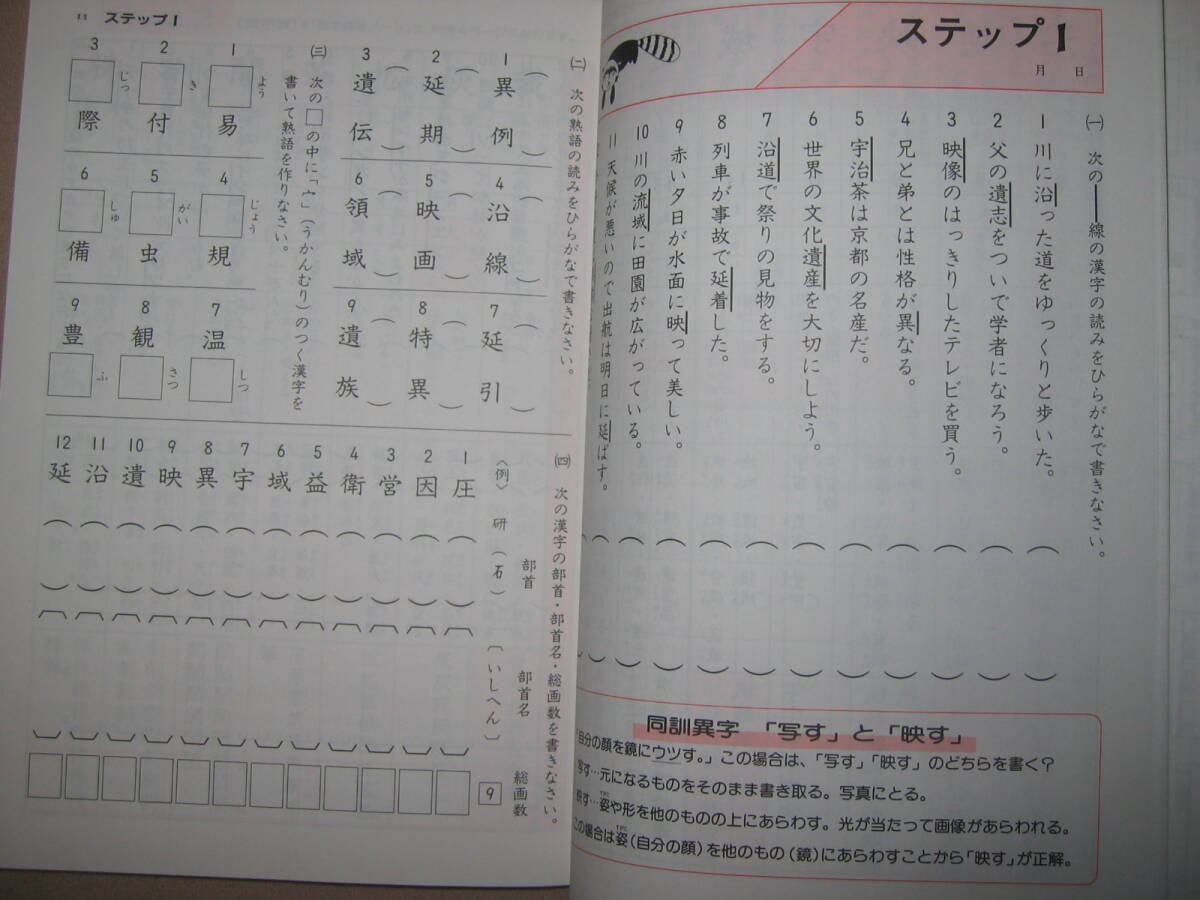 ステップ1
月 日
㈠ 次の――線の漢字の読みをひらがなで書きなさい。
1 川に沿った道をゆっくりと歩いた。（ ）
2 父の遺志をついで学者になろう。（ ）
3 映像のはっきりしたテレビを買う。（ ）
4 兄と弟とは性格が異なる。（ ）
5 宇治茶は京都の名産だ。（ ）
6 世界の文化遺産を大切にしよう。（ ）
7 沿道で祭りの見物をする。（ ）
8 列車が事故で延着した。（ ）
9 赤い夕日が水面に映って美しい。（ ）
10 川の流域に田園が広がっている。（ ）
11 天候が悪いので出航は明日に延ばす。（ ）
同訓異字 「写す」と「映す」
「自分の顔を鏡にウツす。」この場合は、「写す」「映す」のどちらを書く?
写す…元になるものをそのまま書き取る。写真にとる。
映す…姿や形を他のものの上にあらわす。光が当たって画像があらわれる。
この場合は姿(自分の顔)を他のもの(鏡)にあらわすことから「映す」が正解。
11 ステップ1
㈡ 次の熟語の読みをひらがなで書きなさい。
1 異例（ ）
2 延期（ ）
3 遺伝（ ）
4 沿線（ ）
5 映画（ ）
6 領域（ ）
7 延引（ ）
8 特異（ ）
9 遺族（ ）
㈢ 次の□の中に「宀」(うかんむり)のつく漢字を
書いて熟語を作りなさい。
1 □よう易
2 □き付
3 □じっ際
4 □じょう規
5 □がい虫
6 □しゅ備
7 温□しつ
8 観□さつ
9 豊□ふ
㈣ 次の漢字の部首・部首名・総画数を書きなさい。
部首 部首名 総画数
〈例〉 研（石）〔いしへん〕 9
1 圧（ ）〔 〕□
2 因（ ）〔 〕□
3 営（ ）〔 〕□
4 衛（ ）〔 〕□
5 益（ ）〔 〕□
6 域（ ）〔 〕□
7 宇（ ）〔 〕□
8 異（ ）〔 〕□
9 映（ ）〔 〕□
10 遺（ ）〔 〕□
11 沿（ ）〔 〕□
12 延（ ）〔 〕□